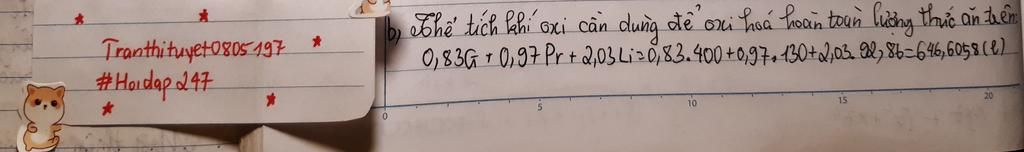 Tranthituyet0805197
#Hoidap247
b, Thể tích khí oxi cần dùng để oxi hoá hoàn toàn lượng thức ăn trên:
0,83G + 0,97Pr + 2,03Li = 0,83.400+0,97.130+2,03.92,86=646,6058(l)
0 5 10 15 20